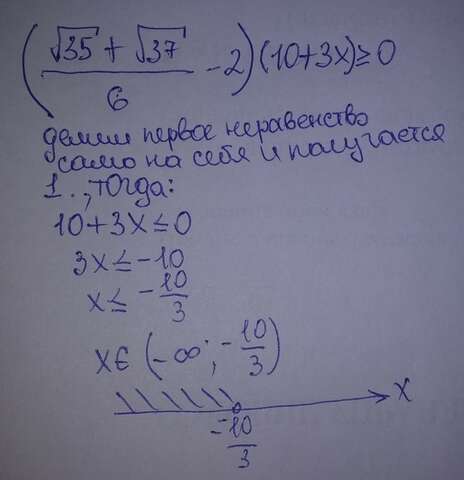 (√35 + √37 / 6 - 2)(10+3x) ≥ 0
делим первое неравенство
само на себя и получается
1., тогда:
10+3x ≤ 0
3x ≤ -10
x ≤ -10/3
x ∈ (-∞; -10/3)
x
-10/3